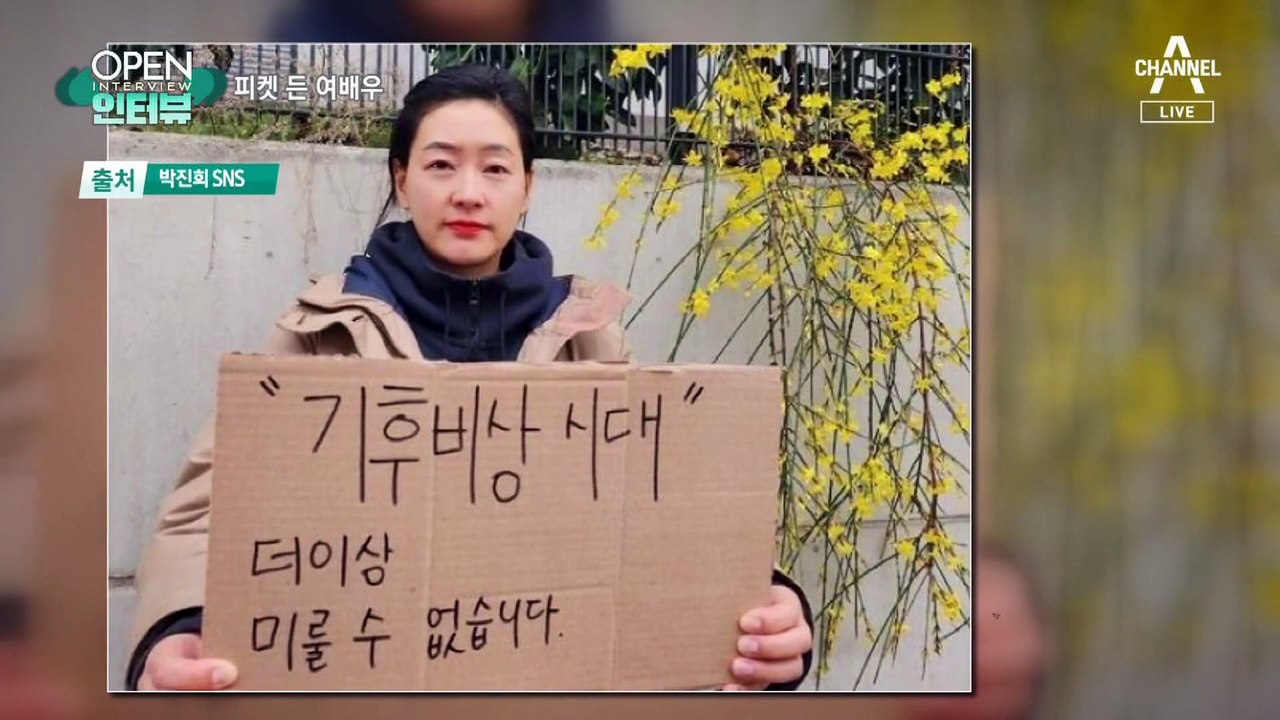 OPEN
INTERVIEW
인터뷰
피켓 든 여배우
출처 박진희 SNS
CHANNEL
LIVE
"기후비상 시대"
더이상
미룰 수 없습니다.